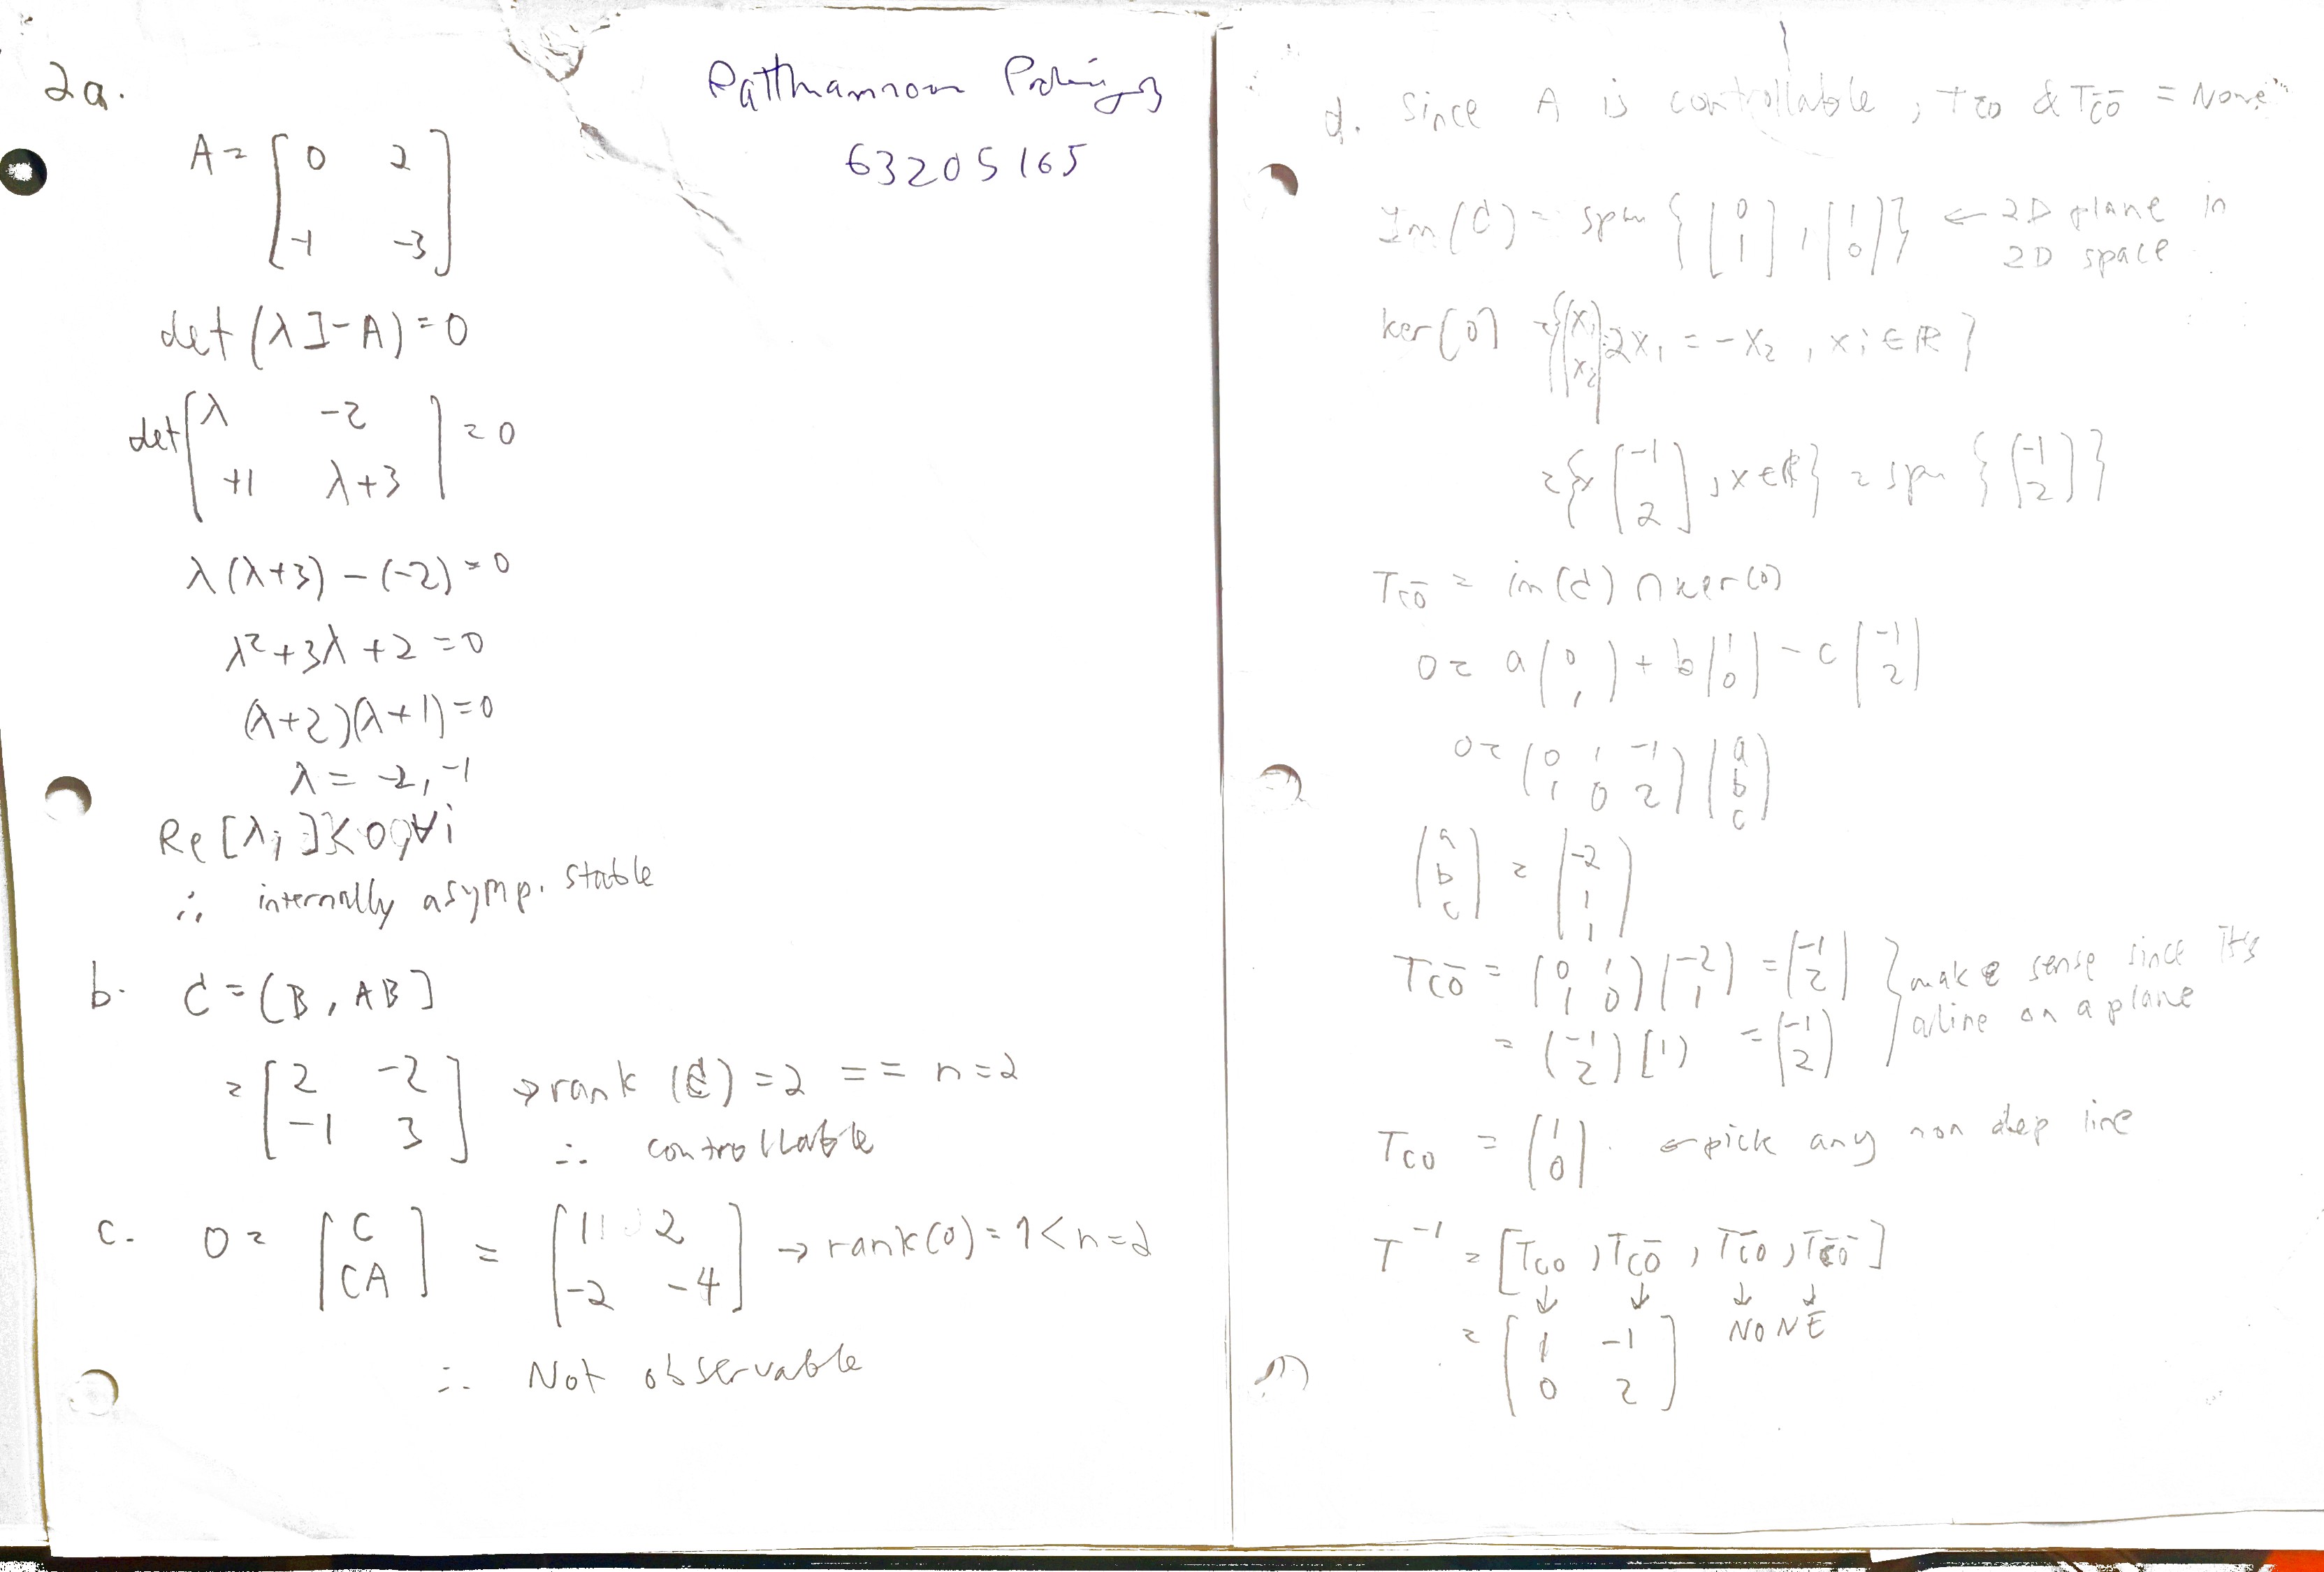 2a.
63205165
A = [0 2; -1 -3]
det(λI-A)=0
det [λ -2; +1 λ+3] = 0
λ(λ+3) - (-2) = 0
λ²+3λ+2=0
(λ+2)(λ+1)=0
λ = -2, -1
Re[λi]<0, ∀i
∴ internally asymp. stable
b. C = [B, AB]
= [2 -2; -1 3] → rank(C)=2 == n=2
∴ controllable
c. O = [C; CA] = [1 2; -2 -4] → rank(O)=1<n=2
∴ Not observable
d. Since A is controllable, Tc̄o & Tc̄ō = None
Im(C) = span {[0; 1], [1; 0]} ← 2D plane in 2D space
ker(O) = {(x1; x2) 2x1 = -x2, xi∈ℝ}
= {x [-1; 2], x∈ℝ} = span {[-1; 2]}
Tcō = im(C) ∩ ker(O)
0 = a(0; 1) + b(1; 0) - c(-1; 2)
0 = (0 1 -1; 1 0 2)(a; b; c)
(a; b; c) = (-2; 1; 1)
Tcō = (0 1; 1 0)(-2; 1) = (-1; 2) } make sense since it's
= (-1; 2)[1] = (-1; 2) a line on a plane
Tco = (1; 0). ← pick any non dep line
T⁻¹ = [Tco, Tcō, Tc̄o, Tc̄ō]
↓ ↓ ↓ ↓
= [1 -1; 0 2] NONE